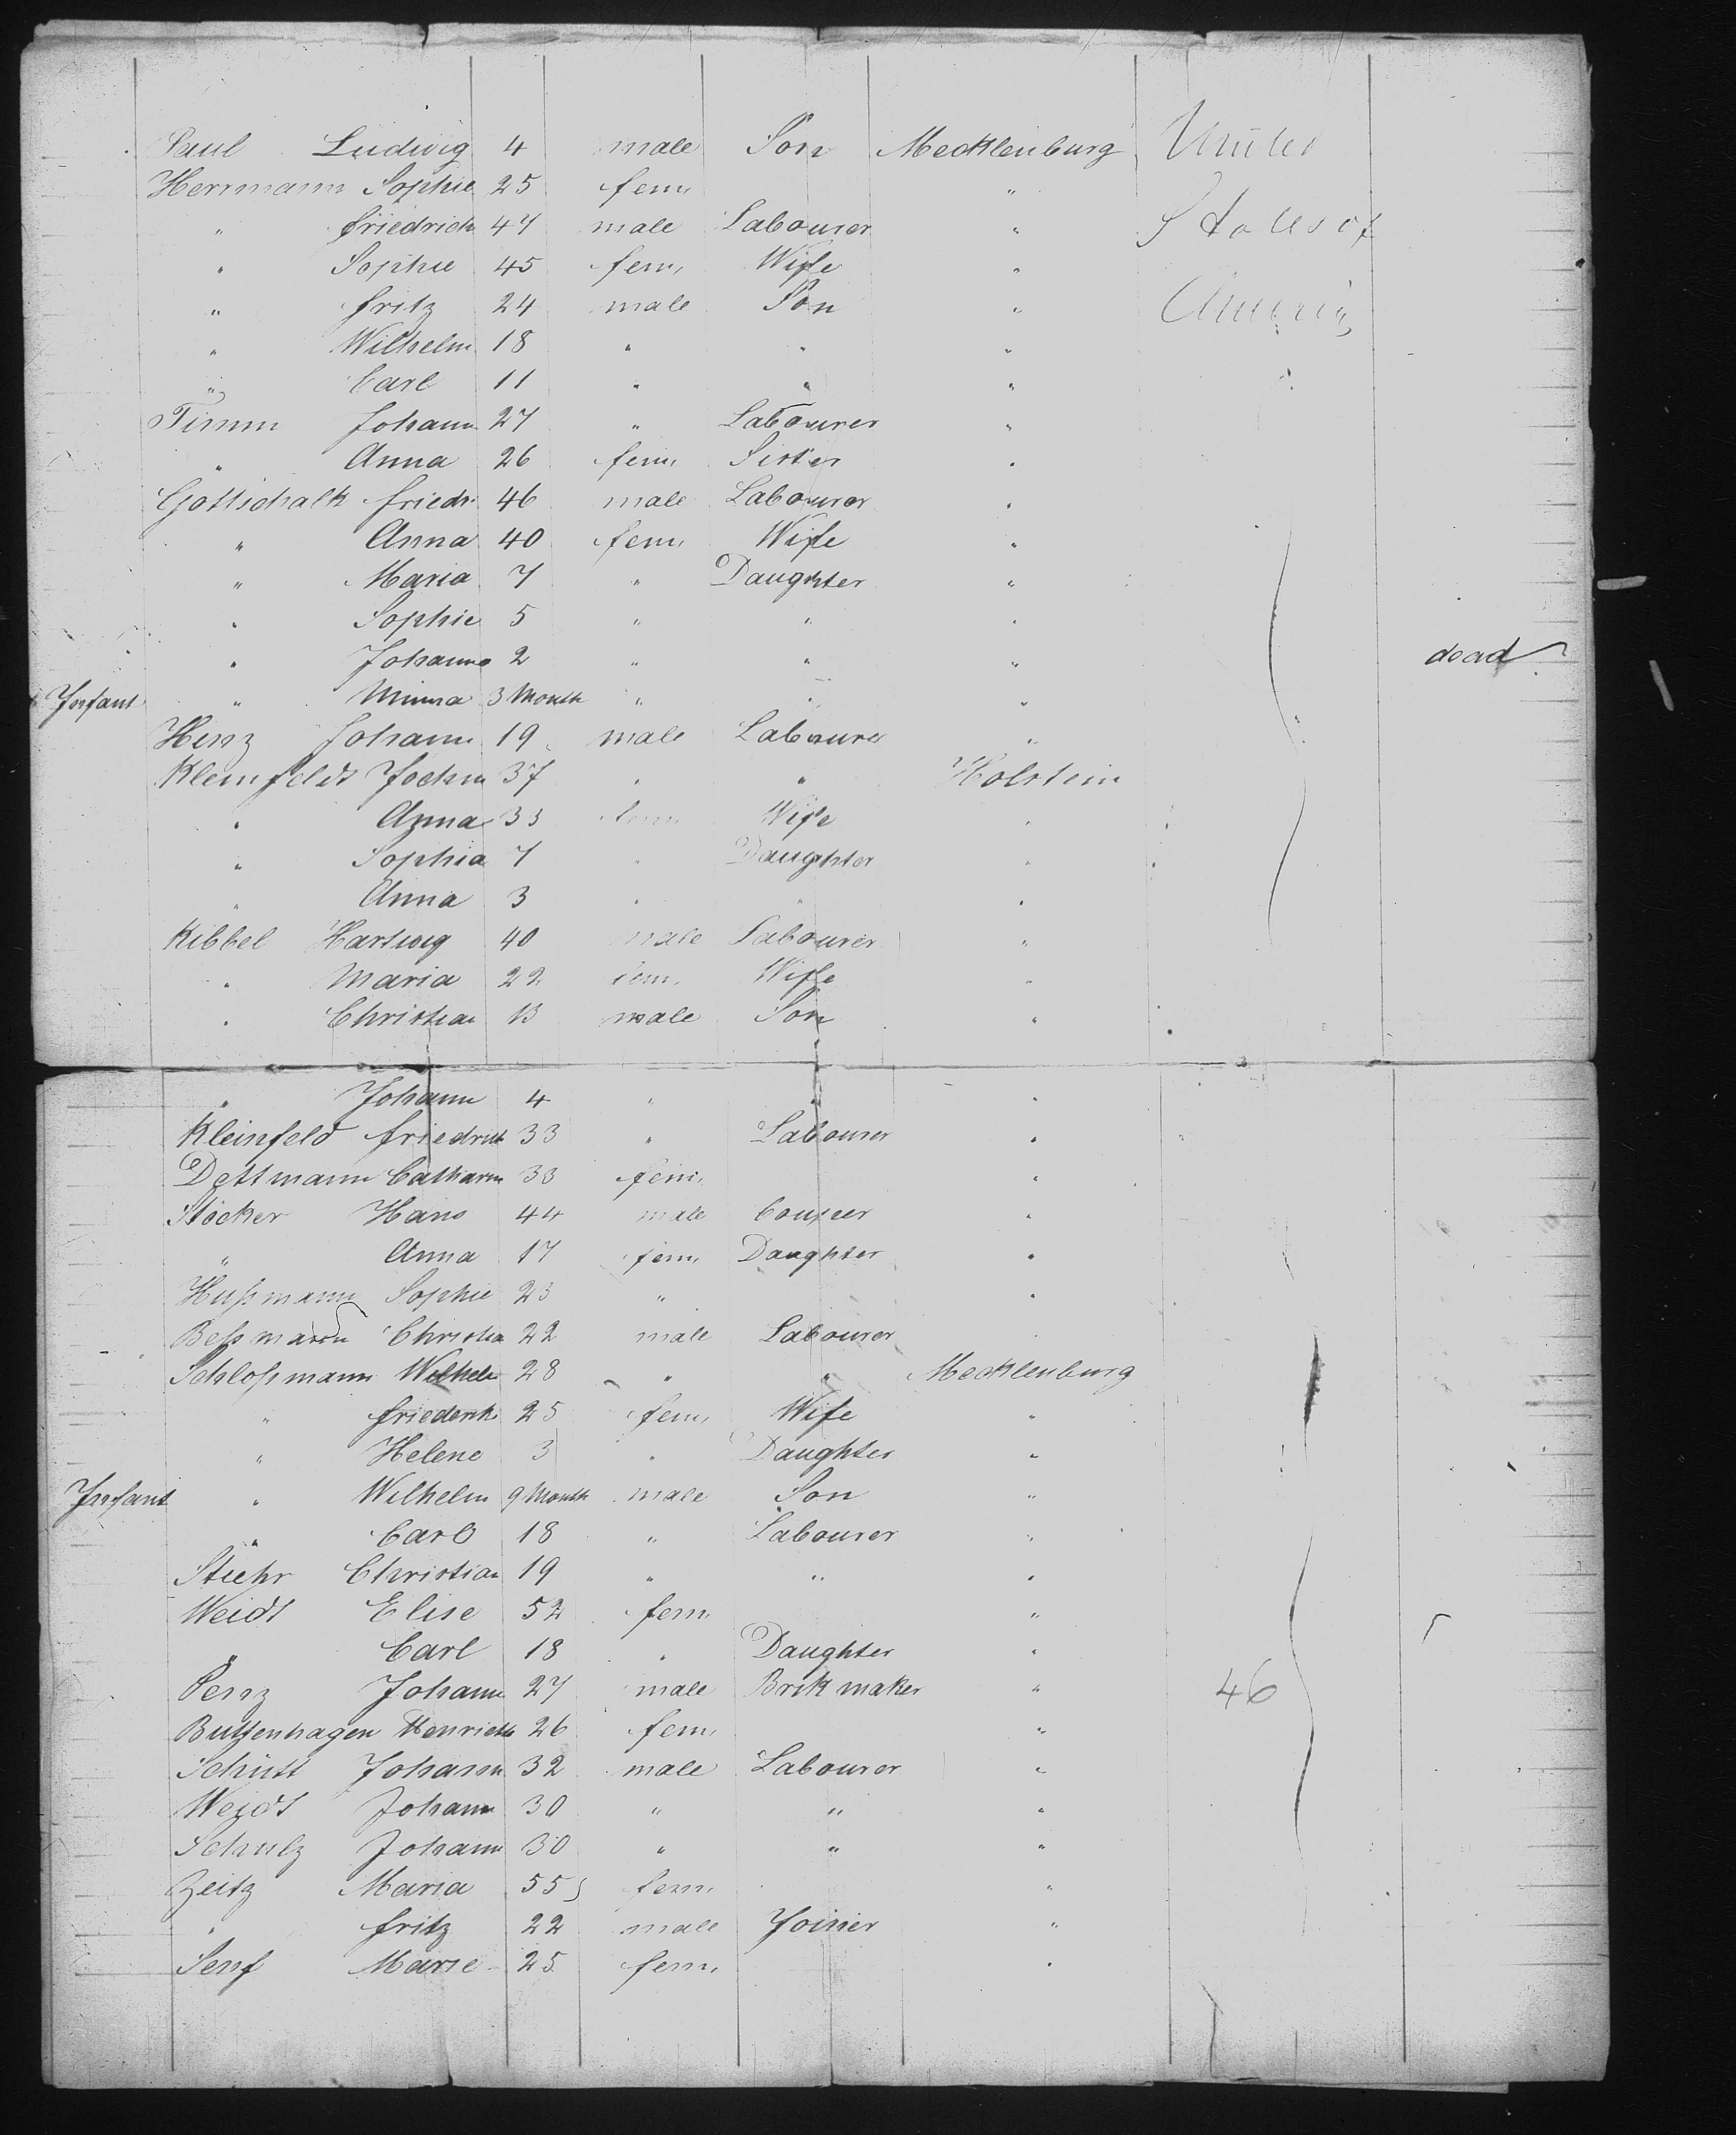 Paul Ludwig 4 male Son Mecklenburg United
Herrmann Sophie 25 fem, "
" Friedrich 47 male Labourer " States of
" Sophie 45 fem, Wife "
" Fritz 24 male Son " America
" Wilhelm 18 " " "
" Carl 11 " " "
Timm Johann 27 " Labourer "
" Anna 26 fem, Sister "
Gottschalk Friedr. 46 male Labourer "
" Anna 40 fem, Wife "
" Maria 7 " Daughter "
" Sophie 5 " " "
" Johanna 2 " " " dead
Infant " Minna 3 Month " " "
Henz Johann 19 male Labourer "
Kleinfeldt Jochm 37 " " Holstein
" Anna 33 fem, Wife "
" Sophia 7 " Daughter "
" Anna 3 " " "
Kibbel Hartwig 40 male Labourer "
" Maria 22 fem, Wife "
" Christian 13 male Son "
" Johann 4 " " "
Kleinfeld Friedrich 33 " Labourer "
Dettmann Catharin 33 fem, "
Stöcker Hans 44 male "
" Anna 17 fem, Daughter "
Hußmann Sophie 23 " "
Beßmann Christia 22 male Labourer "
Schloßmann Wilhelm 28 " " Mecklenburg
" Friederik 25 fem, Wife "
" Helene 3 " Daughter "
Infant " Wilhelm 9 Month male Son "
" Carl 18 " Labourer "
Stiehr Christian 19 " " "
Weidt Elise 52 fem, "
" Carl 18 " Daughter "
Penz Johann 27 male Brik maker " 46
Butzenhagen Henriette 26 fem, "
Schütt Johann 32 male Labourer "
Weidt Johann 30 " " "
Schulz Johann 30 " " "
Zeitz Maria 55 fem, "
" Fritz 22 male Joiner "
Senf Marie 25 fem, "